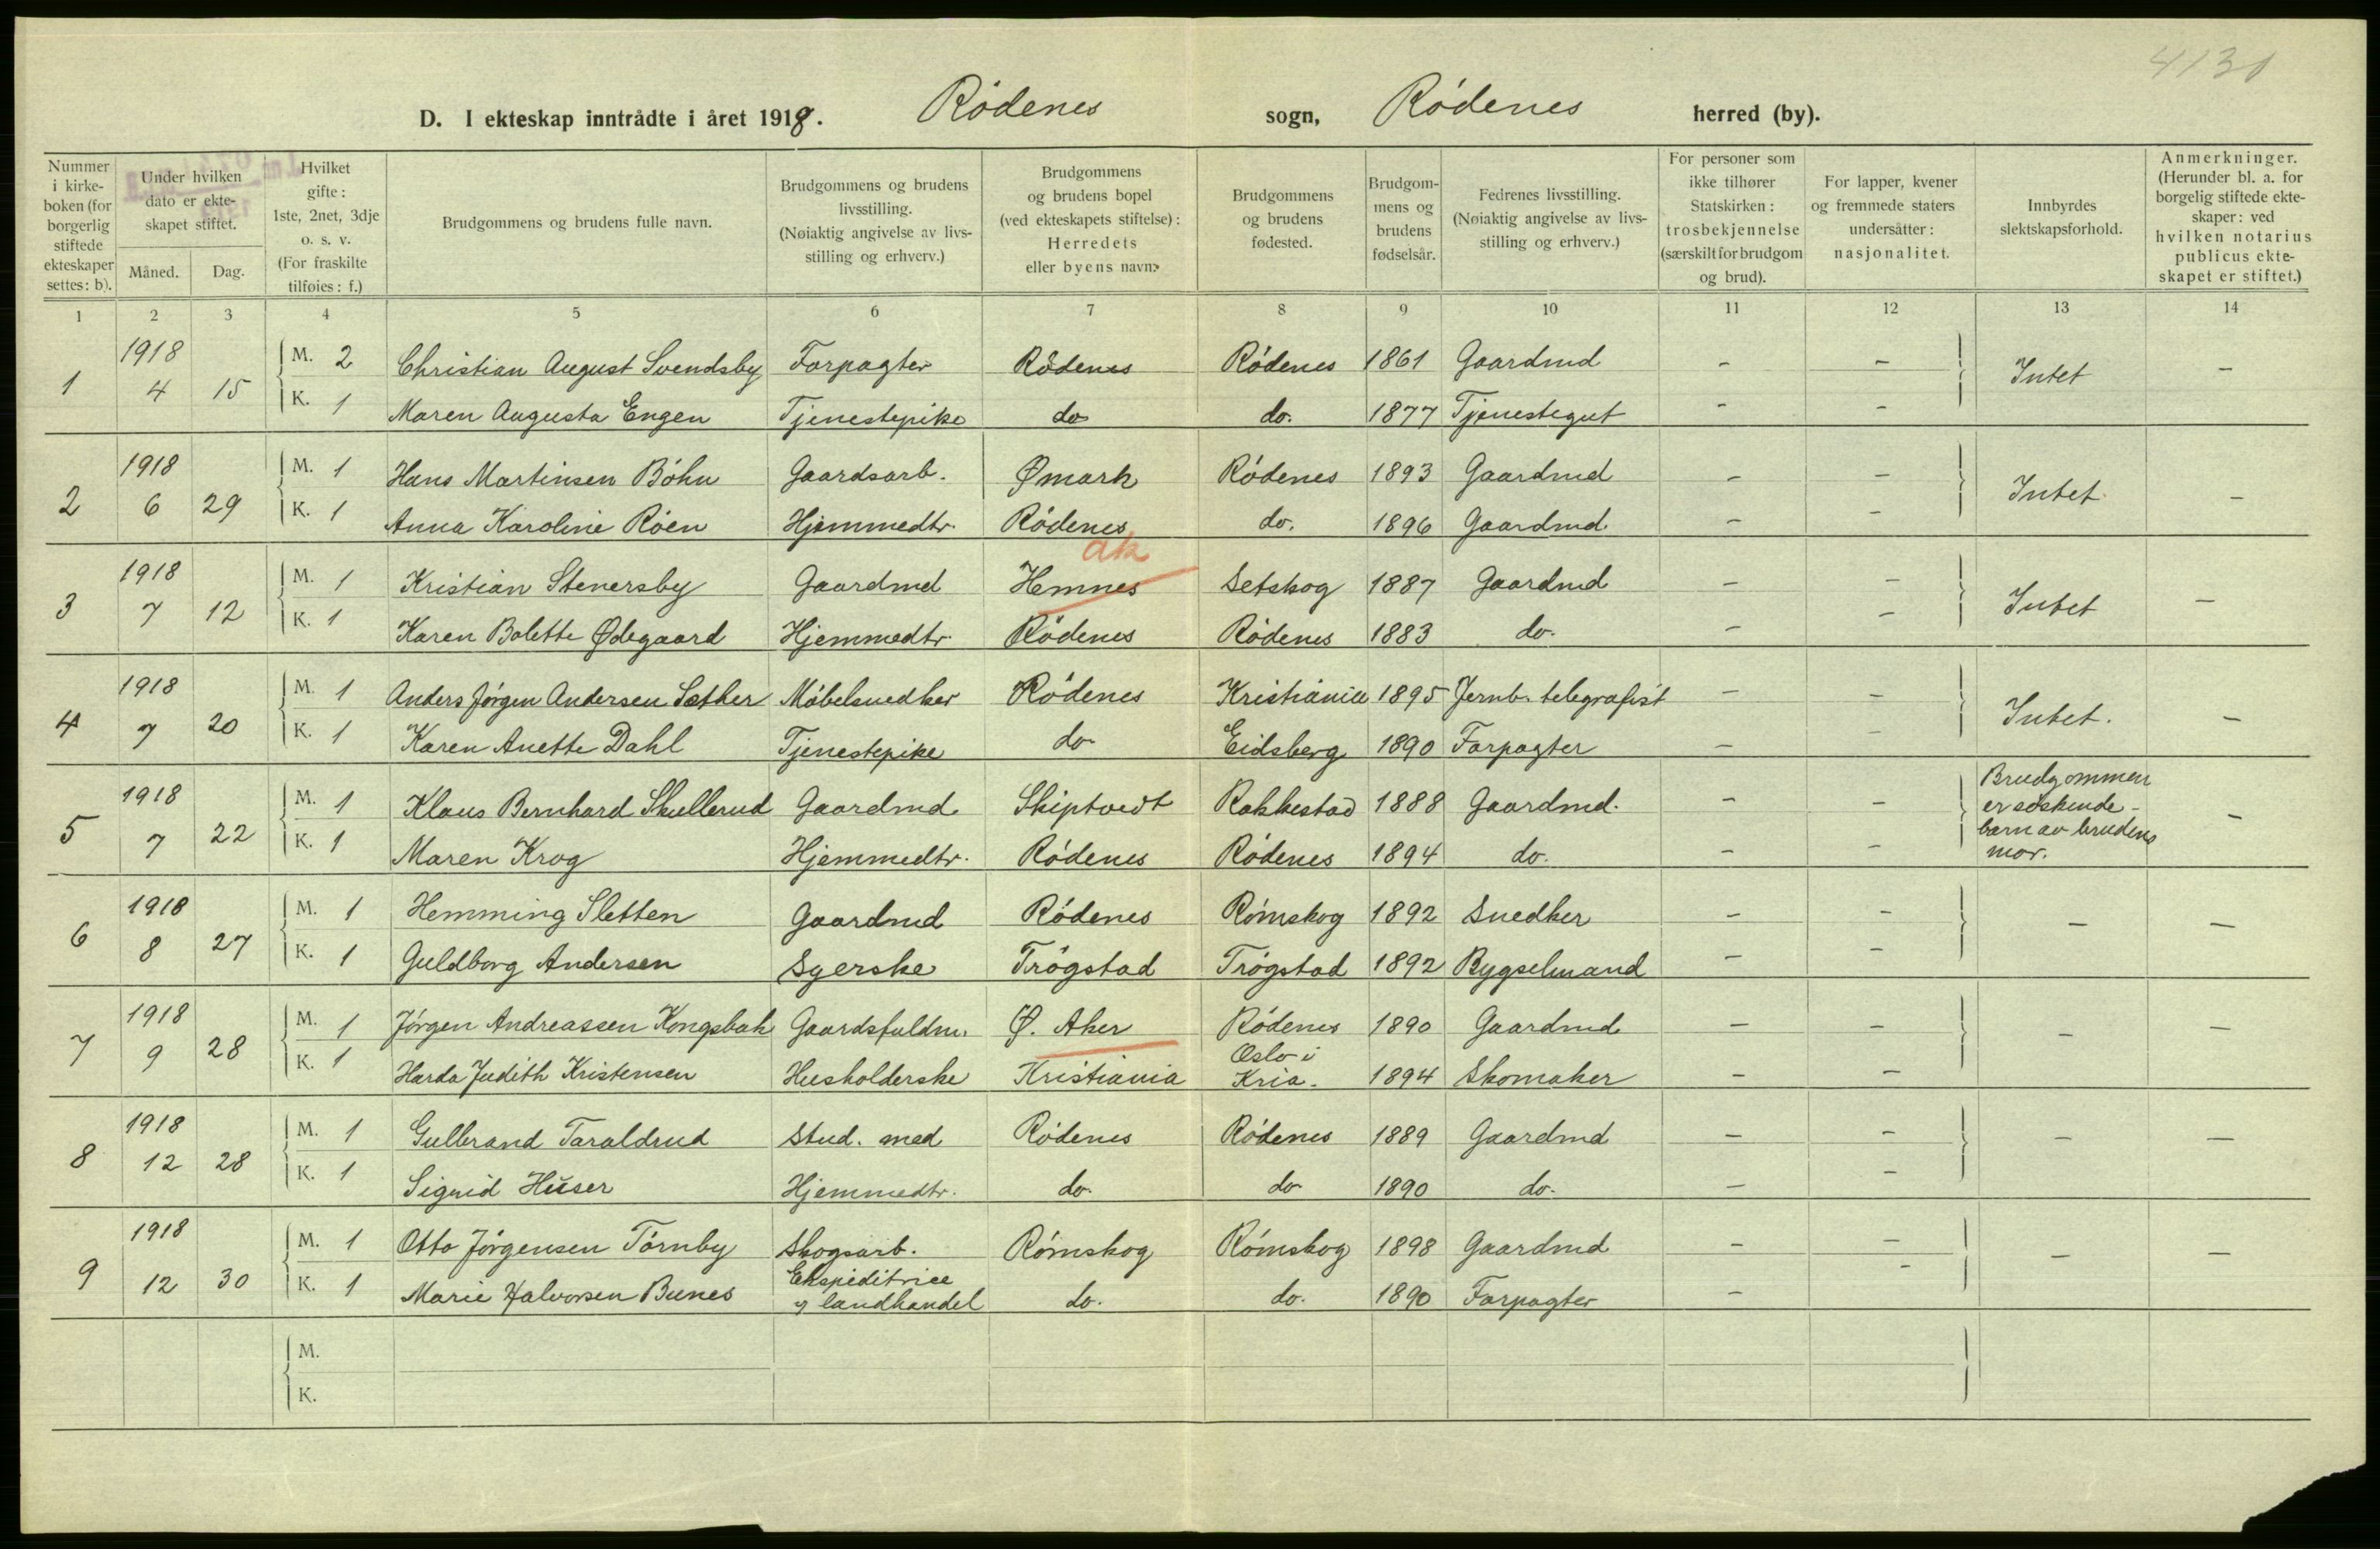 4130
D. I ekteskap inntrådte i året 1918. Rödenes sogn, Rödenes herred (by).
Nummer i kirke-boken (for borgerlig stiftede ekteskaper settes: b).
Under hvilken dato er ekte-skapet stiftet.
Måned. Dag.
Hvilket gifte: 1ste, 2net, 3dje o. s. v. (For fraskilte tilføies: f.)
Brudgommens og brudens fulle navn.
Brudgommens og brudens livsstilling. (Nøiaktig angivelse av livs-stilling og erhverv.)
Brudgommens og brudens bopel (ved ekteskapets stiftelse): Herredets eller byens navn.
Brudgommens og brudens fødested.
Brudgom-mens og brudens fødselsår.
Fedrenes livsstilling. (Nøiaktig angivelse av livs-stilling og erhverv.)
For personer som ikke tilhører Statskirken: trosbekjennelse (særskilt for brudgom og brud).
For lapper, kvener og fremmede staters undersåtter: nasjonalitet.
Innbyrdes slektskapsforhold.
Anmerkninger. (Herunder bl. a. for borgelig stiftede ekte-skaper: ved hvilken notarius publicus ekte-skapet er stiftet.)
1 2 3 4 5 6 7 8 9 10 11 12 13 14
1 1918 4 15 M. 2 Christian August Svendsby Forpagter Rödenes Rödenes 1861 Gaardmd - - Intet -
K. 1 Maren Augusta Engen Tjenestepike do do. 1877 Tjenestegut - -
2 1918 6 29 M. 1 Hans Martinsen Böhn Gaardsarb. Ømark Rödenes 1893 Gaardmd - - Intet -
K. 1 Anna Karoline Röen Hjemmedtr. Rödenes do. 1896 Gaardmd. - -
ak
3 1918 7 12 M. 1 Kristian Stenersby Gaardmd Hemnes Setskog 1887 Gaardmd - - Intet -
K. 1 Karen Bolette Ødegaard Hjemmedtr. Rödenes Rödenes 1883 do. - -
4 1918 7 20 M. 1 Anders Jörgen Andersen Sæther Möbelsnedker Rödenes Kristiania 1895 Jernb. telegrafist - - Intet. -
K. 1 Karen Anette Dahl Tjenestepike do Eidsberg 1890 Forpagter - -
5 1918 7 22 M. 1 Klaus Bernhard Skullerud Gaardmd. Skiptvedt Rakkestad 1888 Gaardmd. - - Brudgommen er söskende-barn av brudens mor. -
K. 1 Maren Krog Hjemmedtr. Rödenes Rödenes 1894 do. - -
6 1918 8 27 M. 1 Hemming Sletten Gaardmd Rödenes Römskog 1892 Snedker - - - -
K. 1 Guldborg Andersen Syerske Trögstad Trögstad 1892 Bygselmand - -
7 1918 9 28 M. 1 Jörgen Andreassen Kongsbak Gaardsfuldm. Ø. Aker Rödenes 1890 Gaardmd - - - -
K. 1 Harda Judith Kristensen Husholderske Kristiania Oslo i Kria. 1894 Skomaker - -
8 1918 12 28 M. 1 Gulbrand Taraldrud Stud. med Rödenes Rödenes 1889 Gaardmd - - - -
K. 1 Sigrid Huser Hjemmedtr. do. do 1890 do. - -
9 1918 12 30 M. 1 Otto Jörgensen Törnby Skogsarb. Römskog Römskog 1898 Gaardmd - - - -
K. 1 Marie Halvorsen Bunes Ekspeditrice v landhandel do. do. 1890 Forpagter - -
M.
K.